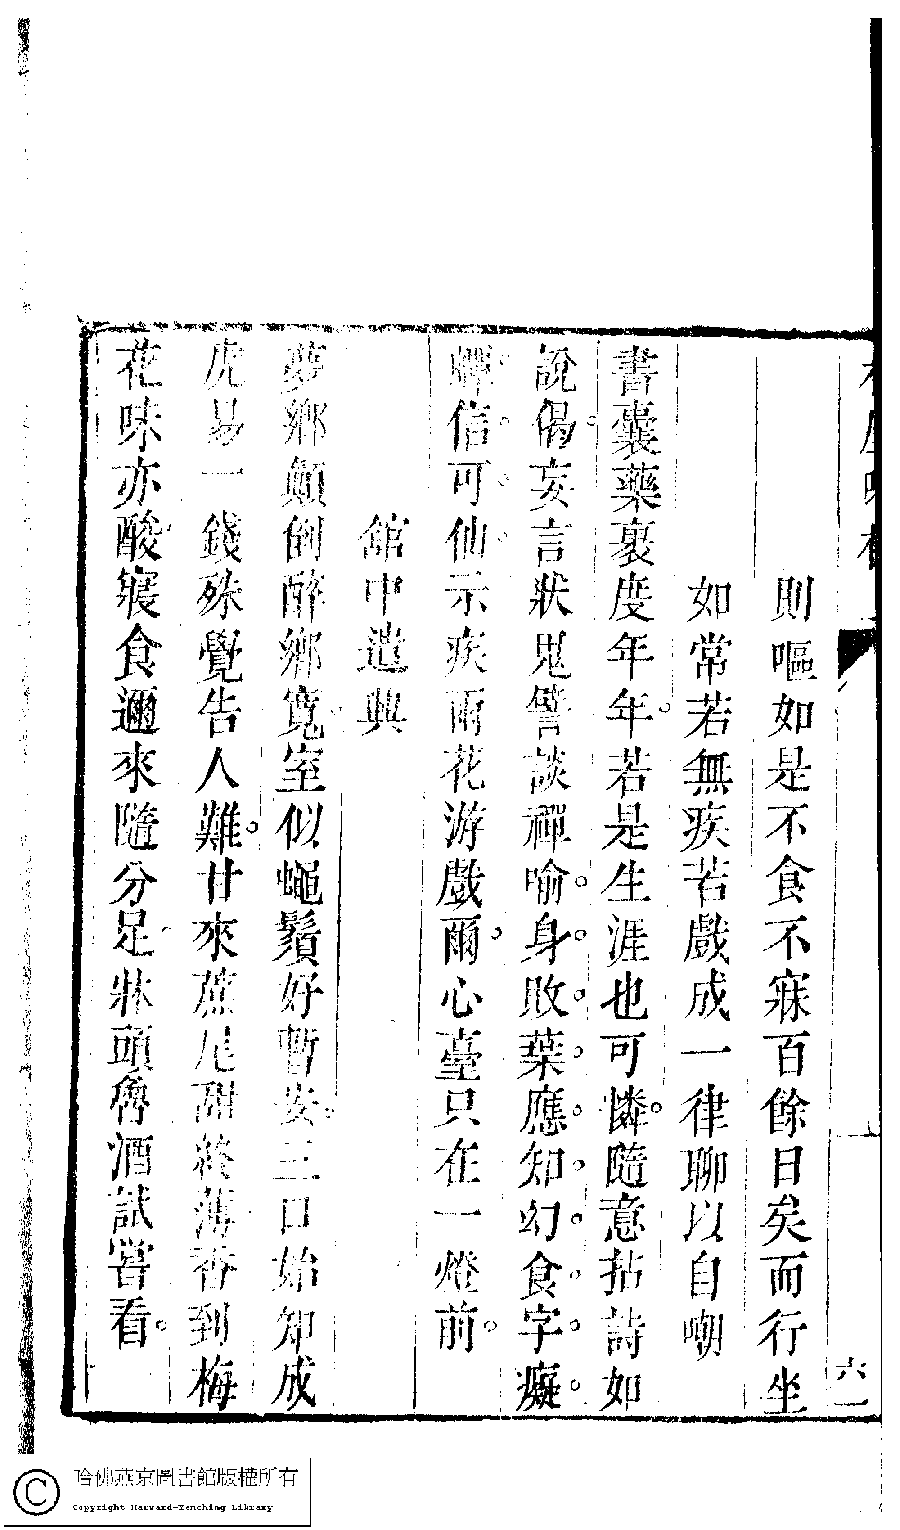 則嘔如是不食不寐百餘日矣而行坐
如常若無疾苦戲成一律聊以自嘲
書囊藥裹度年年若是生涯也可憐隨意拈詩如
說偈妄言狀鬼譬談禪喻身敗葉應知幻食字癡
蟫信可仙示疾雨花游戲爾心臺只在一燈前
館中遣興
夢鄉顛倒醉鄉寬室似蠅鬚好暫安三口始知成
虎易一錢殊覺告人難甘來蔗尾甜終薄香到梅
花味亦酸寢食邇來隨分足牀頭魯酒試嘗看
六一
哈佛燕京圖書館版權所有
Copyright Harvard-Yenching Library